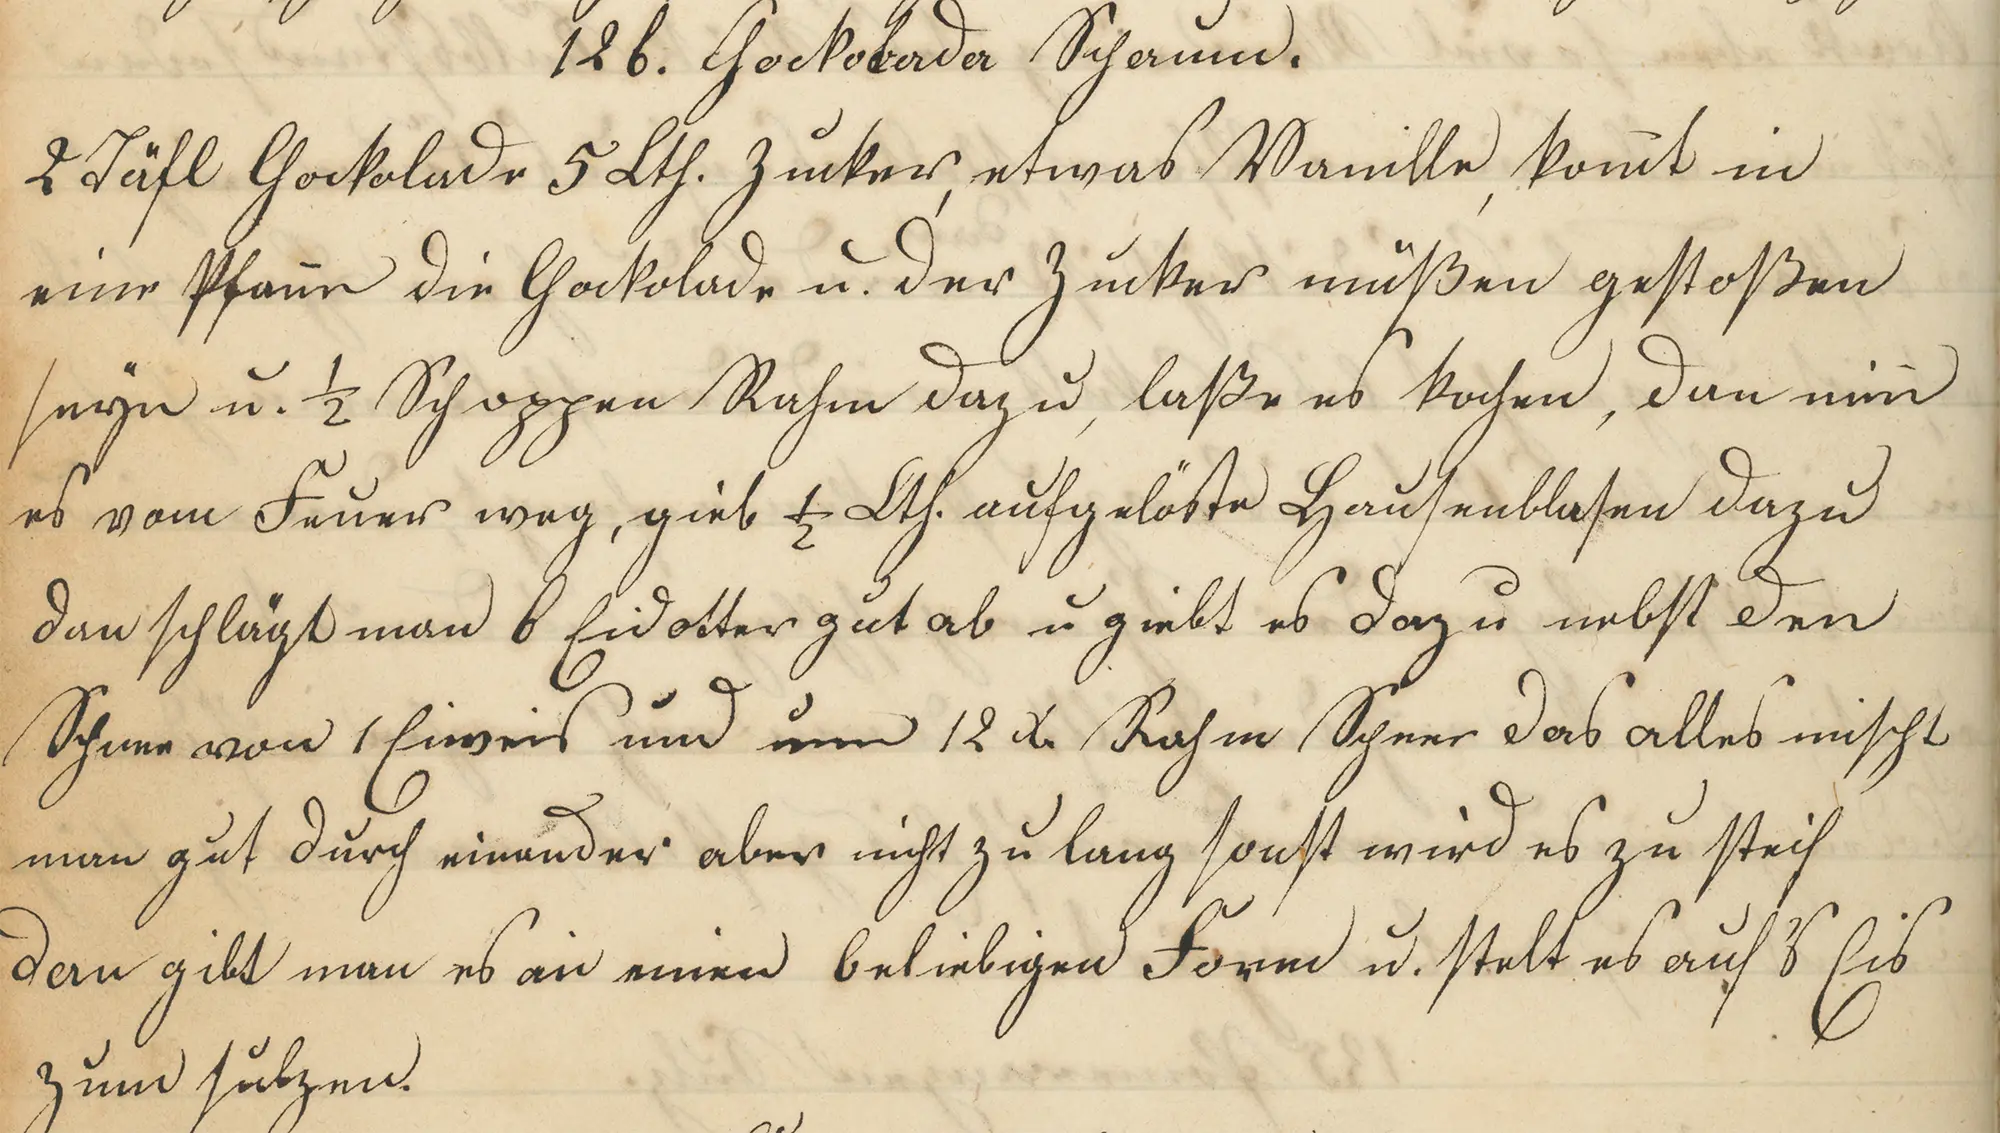 126. Chockolada Schaum.
2 Täfl Chockolade 5 Lth. Zucker, etwas Vanille, kom̄t in
eine Pfan̄e die Chockolade u. der Zucker müßen gestoßen
seyn u. ½ Schoppen Rahm dazu, laße es kochen, dan nim̄
es vom Feuer weg, gieb ½ Lth. aufgelöste Hausenblasen dazu
dan schlägt man 6 Eidotter gut ab u giebt es dazu nebst den
Schnee von 1 Eiweis und 12 x. Rahm Schnee das alles mischt
man gut durch einander aber nicht zu lang sonst wird es zu steif
dan gibt man es in einen beliebigen Form u. stelt es auf's Eis
zum sulzen.